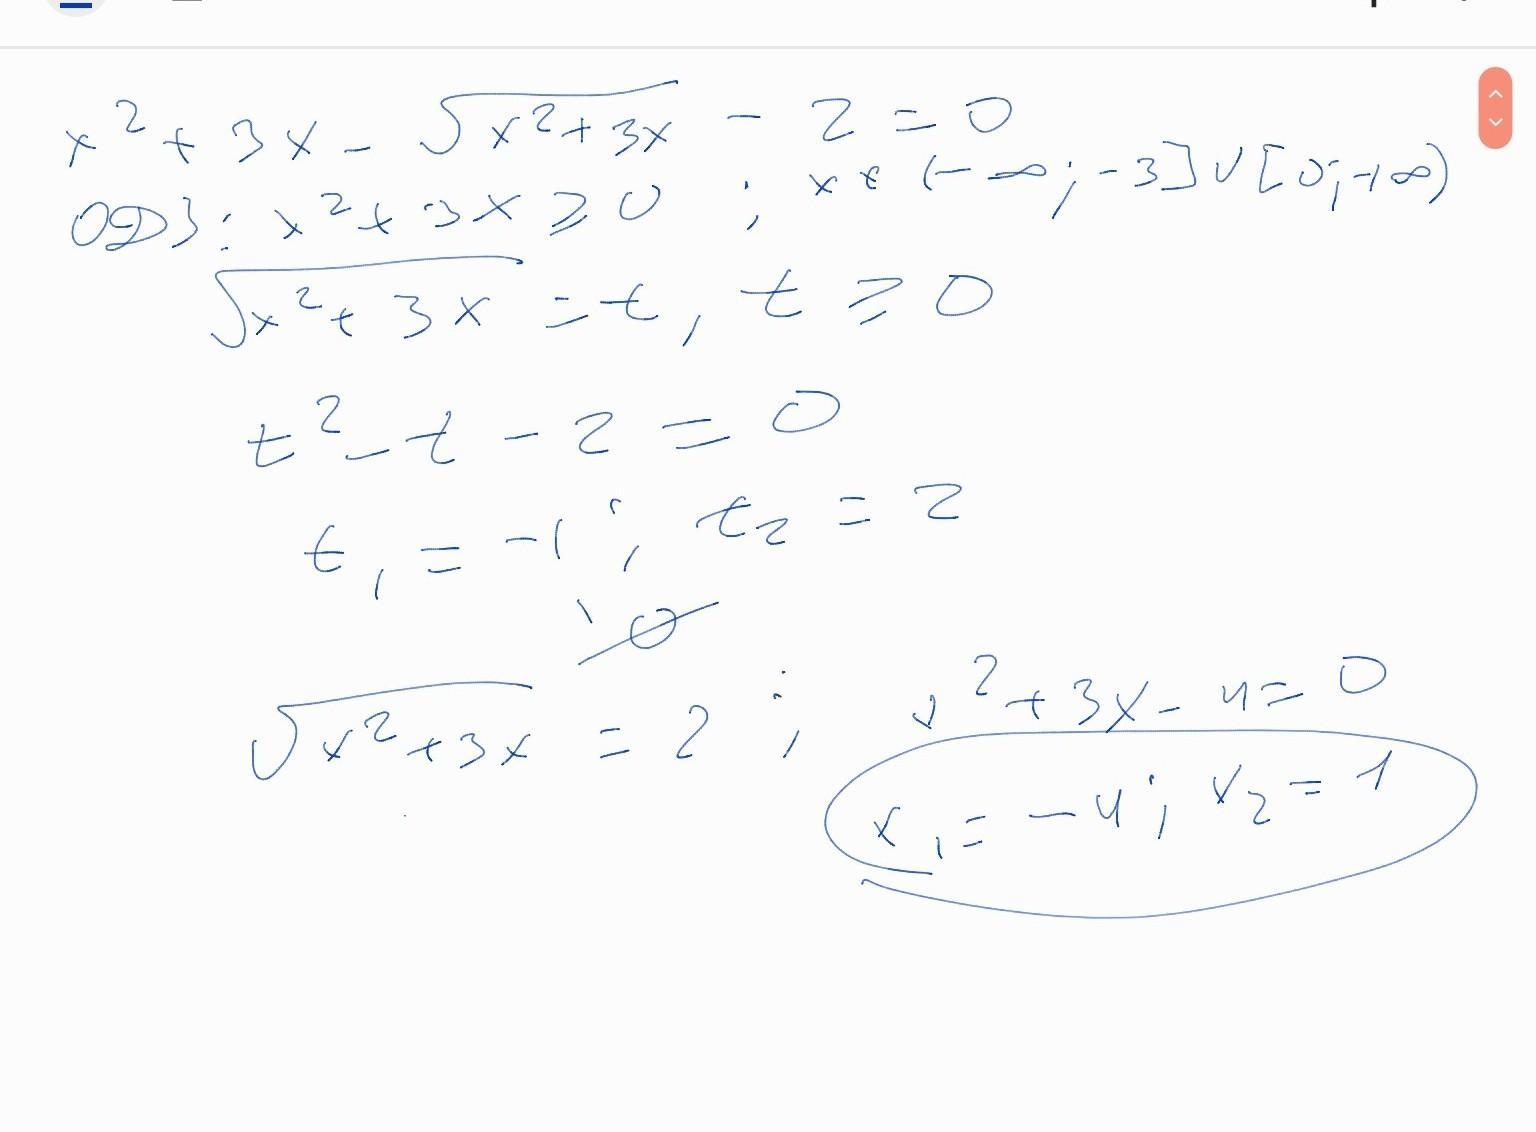 x² + 3x - √(x² + 3x) - 2 = 0
ОДЗ: x² + 3x ≥ 0 ; x ∈ (-∞; -3] ∪ [0; +∞)
√(x² + 3x) = t, t ≥ 0
t² - t - 2 = 0
t₁ = -1; t₂ = 2
∅
√(x² + 3x) = 2 ; x² + 3x - 4 = 0
x₁ = -4; x₂ = 1